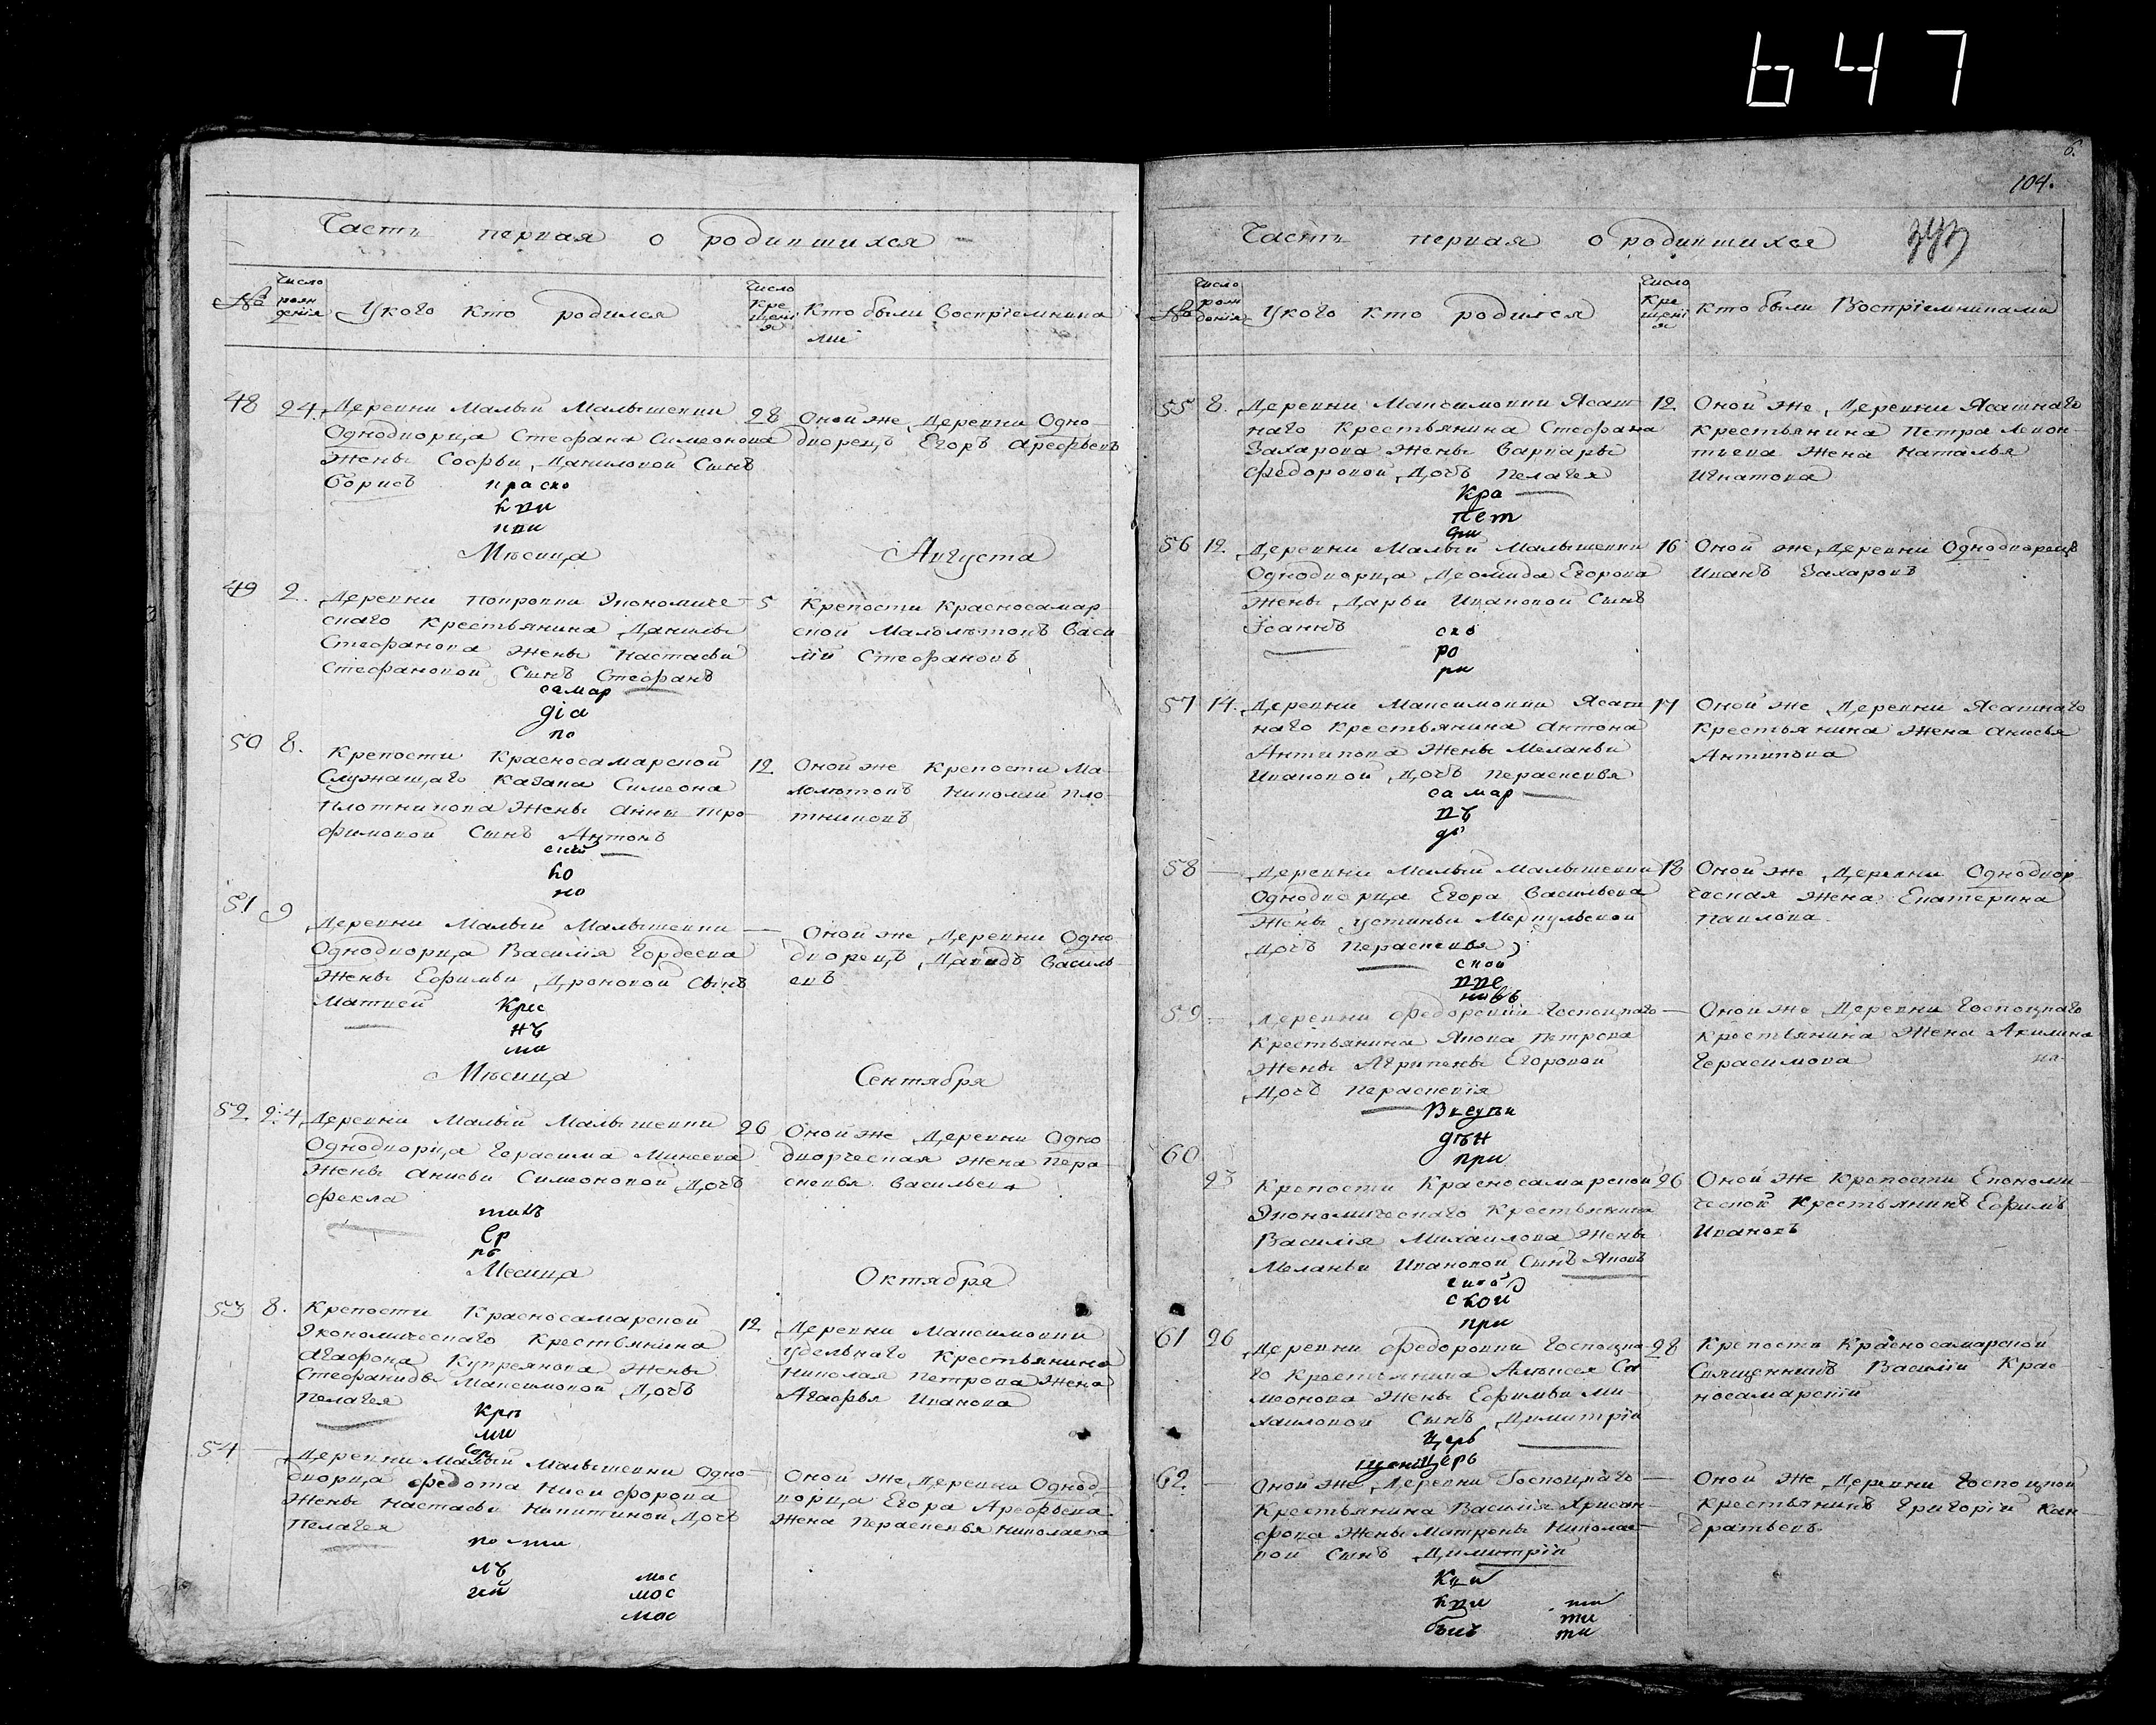 647
Часть первая о родившихся
№
Число рожденія
У кого кто родился
Число крещенія
Кто были восприемниками
48 24. Деревни Малый Малышевки
Однодворца Стефана Симеонова
жены Софьи Даниловой сынъ
Борисъ
28 Оной же деревни Одно-
дворецъ Егоръ Арефьевъ
Мѣсяца Августа
49 2. Деревни Покровки Экономиче-
скаго крестьянина Данилы
Стефанова жены Настасьи
Стефановой сынъ Стефанъ
5 Крепости Красносамар-
ской Малолѣтокъ Васи-
лій Стефановъ
50 8. Крепости Красносамарской
Служащаго казака Симеона
Плотникова жены Анны Тро-
фимовой сынъ Антонъ
12 Оной же крепости Ма-
лолѣтокъ Николай Пло-
тниковъ
51 9 Деревни Малый Малышевки
Однодворца Василія Гордеева
жены Ефимьи Дроновой сынъ
Матвей
Оной же деревни Одно-
дворецъ Давидъ Василь-
евъ
Мѣсяца Сентября
52 24 Деревни Малый Малышевки
Однодворца Герасима Минеева
жены Анисьи Симоновой дочь
Фекла
26 Оной же деревни Одно-
дворческая жена Пера-
сковья Васильева
Месяца Октября
53 8. Крепости Красносамарской
Экономическаго крестьянина
Агафона Купреянова жены
Стефаниды Максимовой дочь
Пелагея
12 Деревни Максимовки
удельнаго крестьянина
Николая Петрова жена
Агафья Иванова
54 Деревни Малый Малышевки Одно-
дворца Федота Никифорова
жены Настасьи Никитиной дочь
Пелагея
Оной же деревни Однод-
ворца Егора Арефьева
жена Перасковья Николаева
6.
104.
Часть первая о родившихся
№
Число рожденія
У кого кто родился
Число крещенія
Кто были восприемниками
55 8. Деревни Максимовки Ясаш-
наго крестьянина Стефана
Захарова жены Варвары
Федоровой дочь Пелагея
12 Оной же деревни Ясашнаго
крестьянина Петра Леон-
тьева жена Наталья
Игнатова
56 12. Деревни Малый Малышевки
Однодворца Деомида Егорова
жены Дарьи Ивановой сынъ
Іоаннъ
16 Оной же деревни Однодворецъ
Иванъ Захаровъ
57 14. Деревни Максимовки Ясаш-
наго крестьянина Антона
Антипова жены Меланьи
Ивановой дочь Перасковья
17 Оной же деревни Ясашнаго
крестьянина жена Анисья
Антипова
58 Деревни Малый Малышевки
Однодворца Егора Васильева
жены Устиньи Меркульевой
дочь Перасковья
18 Оной же деревни Однодвор-
ческая жена Екатерина
Павлова
59 Деревни Федоровки Господскаго
крестьянина Якова Петрова
жены Агрипены Егоровой
дочь Перасковія
Оной же деревни Господскаго
крестьянина жена Акилина
Герасимова
60 23 Крепости Красносамарской
Экономическаго крестьянина
Василія Михаилова жены
Меланьи Ивановой сынъ Яковъ
26 Оной же крепости Економи-
ческой крестьянинъ Ефимъ
Ивановъ
61 26 Деревни Федоровки Господска-
го крестьянина Алексея Си-
меонова жены Ефимьи Ми-
хаиловой сынъ Димитрій
28 Крепости Красносамарской
Священникъ Василій Крас-
носамарскій
62. Оной же деревни Господскаго
крестьянина Василія Хрисан-
фова жены Матрены Николае-
вой сынъ Димитрій
Оной же деревни Господской
крестьянинъ Григорій Кон-
дратьевъ